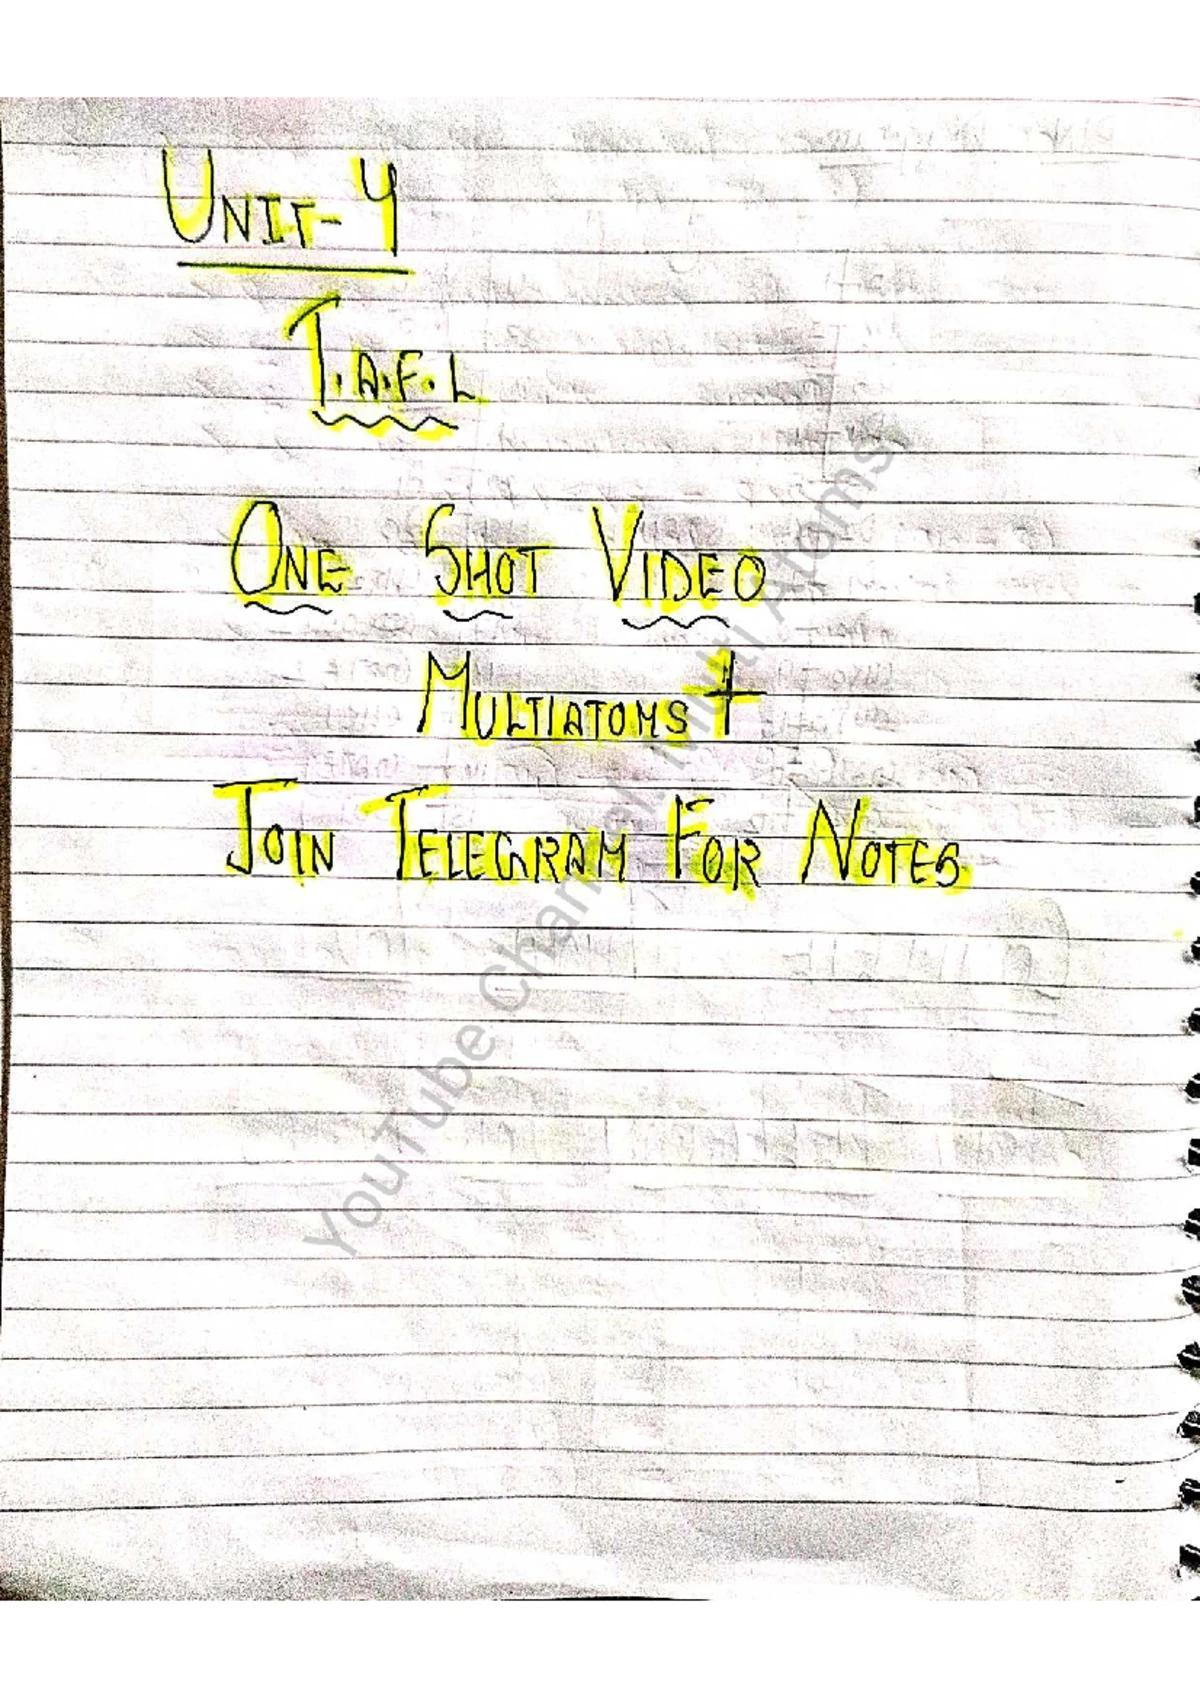 UNIT-4
T.A.F.L
ONE SHOT VIDEO
MULTIATOMS +
JOIN TELEGRAM FOR NOTES
YouTube Channel: Multi Atoms